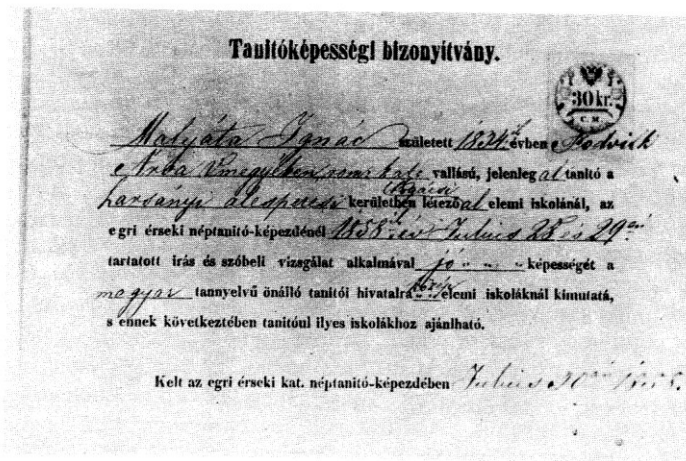 Tanitóképességi bizonyítvány.
30 kr.
C. M.
Malyáta Ignác született 1834 évben
Árva vmegyében rom. kath vallású, jelenleg al tanitó a
harsányi alesperesi kerületben létező al elemi iskolánál, az
egri érseki néptanitó-képezdénél 1858 év Julius 28 és 29én
tartatott irás és szóbeli vizsgálat alkalmával jó képességét a
magyar tannyelvű önálló tanitói hivatalra elemi iskoláknál kimutatá,
s ennek következtében tanitóul ilyes iskolákhoz ajánlható.
Kelt az egri érseki kat. néptanitó-képezdében Julius